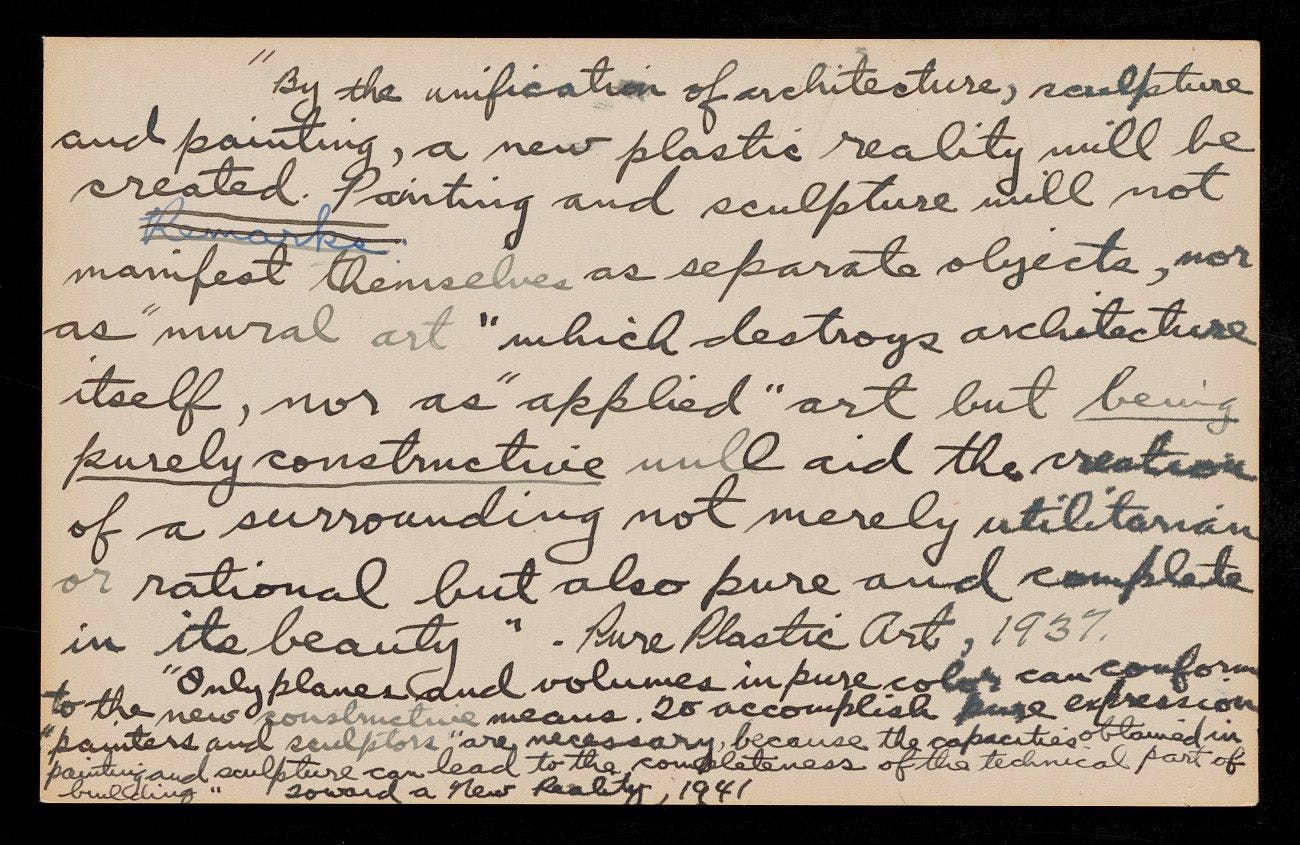 "By the unification of architecture, sculpture
and painting, a new plastic reality will be
created. Painting and sculpture will not
Remarks
manifest themselves as separate objects, nor
as "mural art" which destroys architecture
itself, nor as "applied" art but being
purely constructive will aid the creation
of a surrounding not merely utilitarian
or rational but also pure and complete
in its beauty" - Pure Plastic Art, 1937.
"Only planes and volumes in pure color can conform
to the new constructive means. To accomplish pure expression
"painters and sculptors" are necessary, because the capacities obtained in
painting and sculpture can lead to the completeness of the technical part of
building" Toward a New Reality, 1941